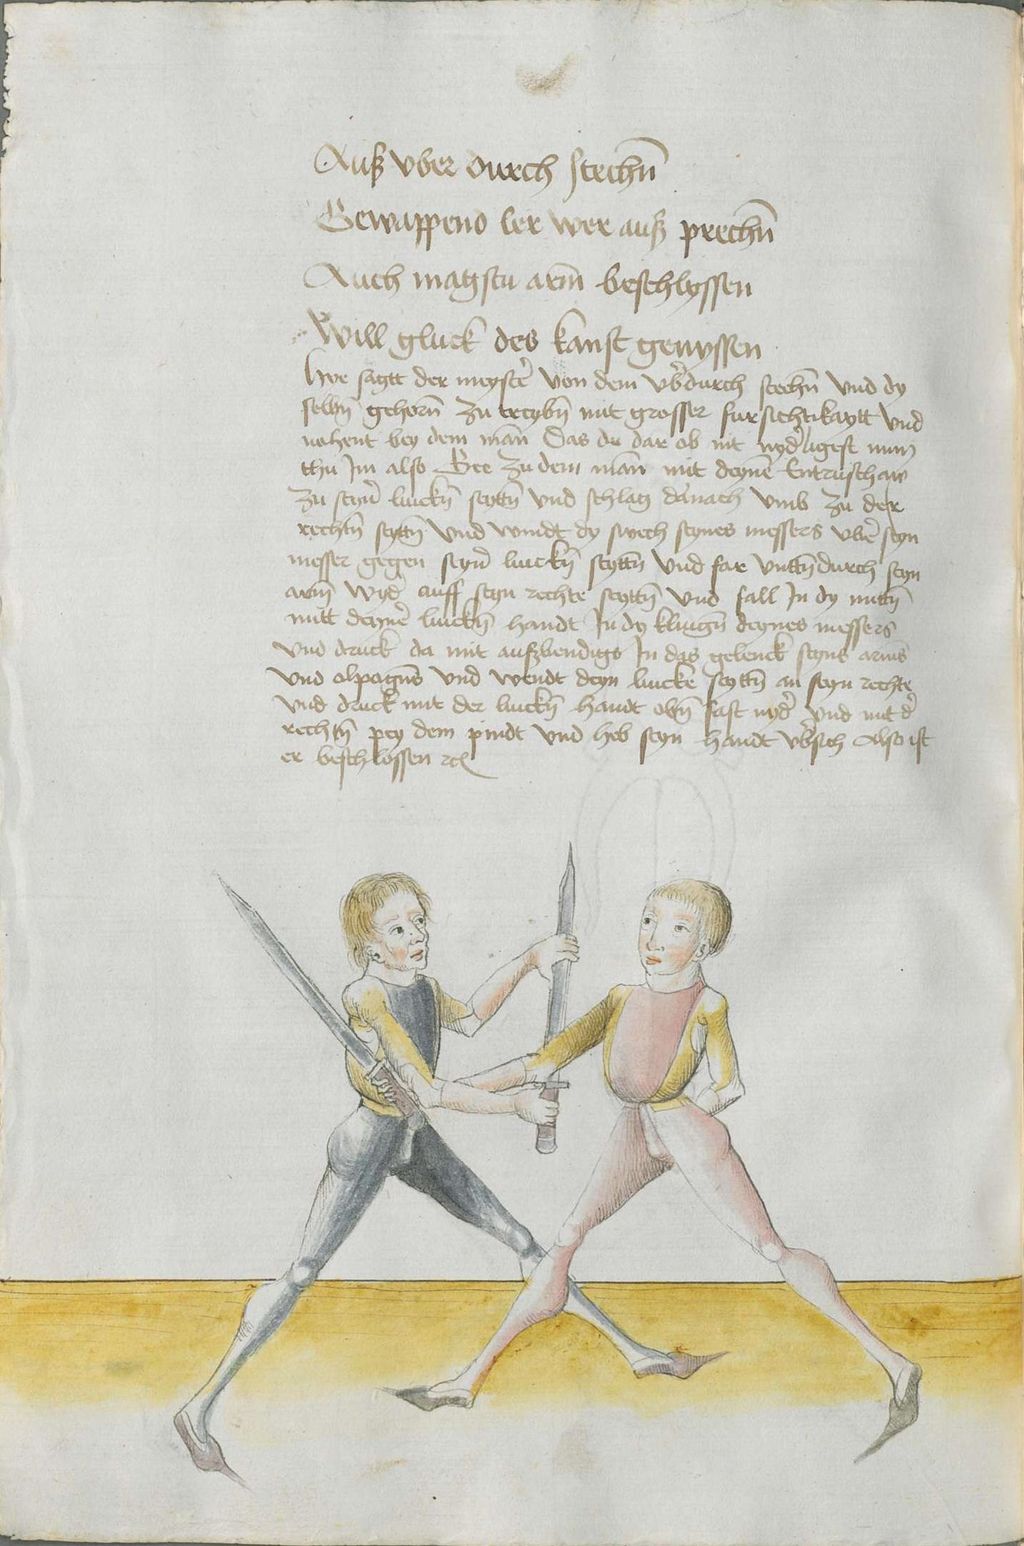 Auß vber durch stechn̄
Gewappend ler wer auß prechn̄
Auch magstu arm̄ beschlyssen
Will gluck des kanst genyssen
Hye sagtt der meyster̄ von dem vb̄durch stechn̄ vnd dy
selbn̄ gehorn̄ zu treybn̄ mit grosser fursichtikaytt vnd
nahent bey dem man̄ Das du dar ob nit nyd̄ligest nun
thu Im also Gee zu dem man̄ mit deyne͂ Entrusthaw
zu seyn̄ linckn̄ seyttn̄ vnd schlag danach vmb zu der
rechtn̄ seyttn̄ vnd windt dy swech deynes messers vbe͂ seyn
messer gegen seyn̄ linckn̄ seyttn̄ vnd far vnttn̄durch seyn
arm̄ wyd̄ auff seyn rechte seyttn̄ vnd fall In dy mittn̄
mitt deyne͂ linckn̄ handt In dy klingn̄ deynes messers
vnd druck da mit außbendigs In das gelenck seyns arms
vnd olpogn̄s vnd wendt deyn lincke seyttn̄ an seyn rechte
vnd druck mit der linckn̄ handt obn̄ fast nyd̄ vnd mit d̄
rechtn̄ pey dem pindt vnd heb seyn handt vb̄sich Also ist
er beschlossen ⁊c